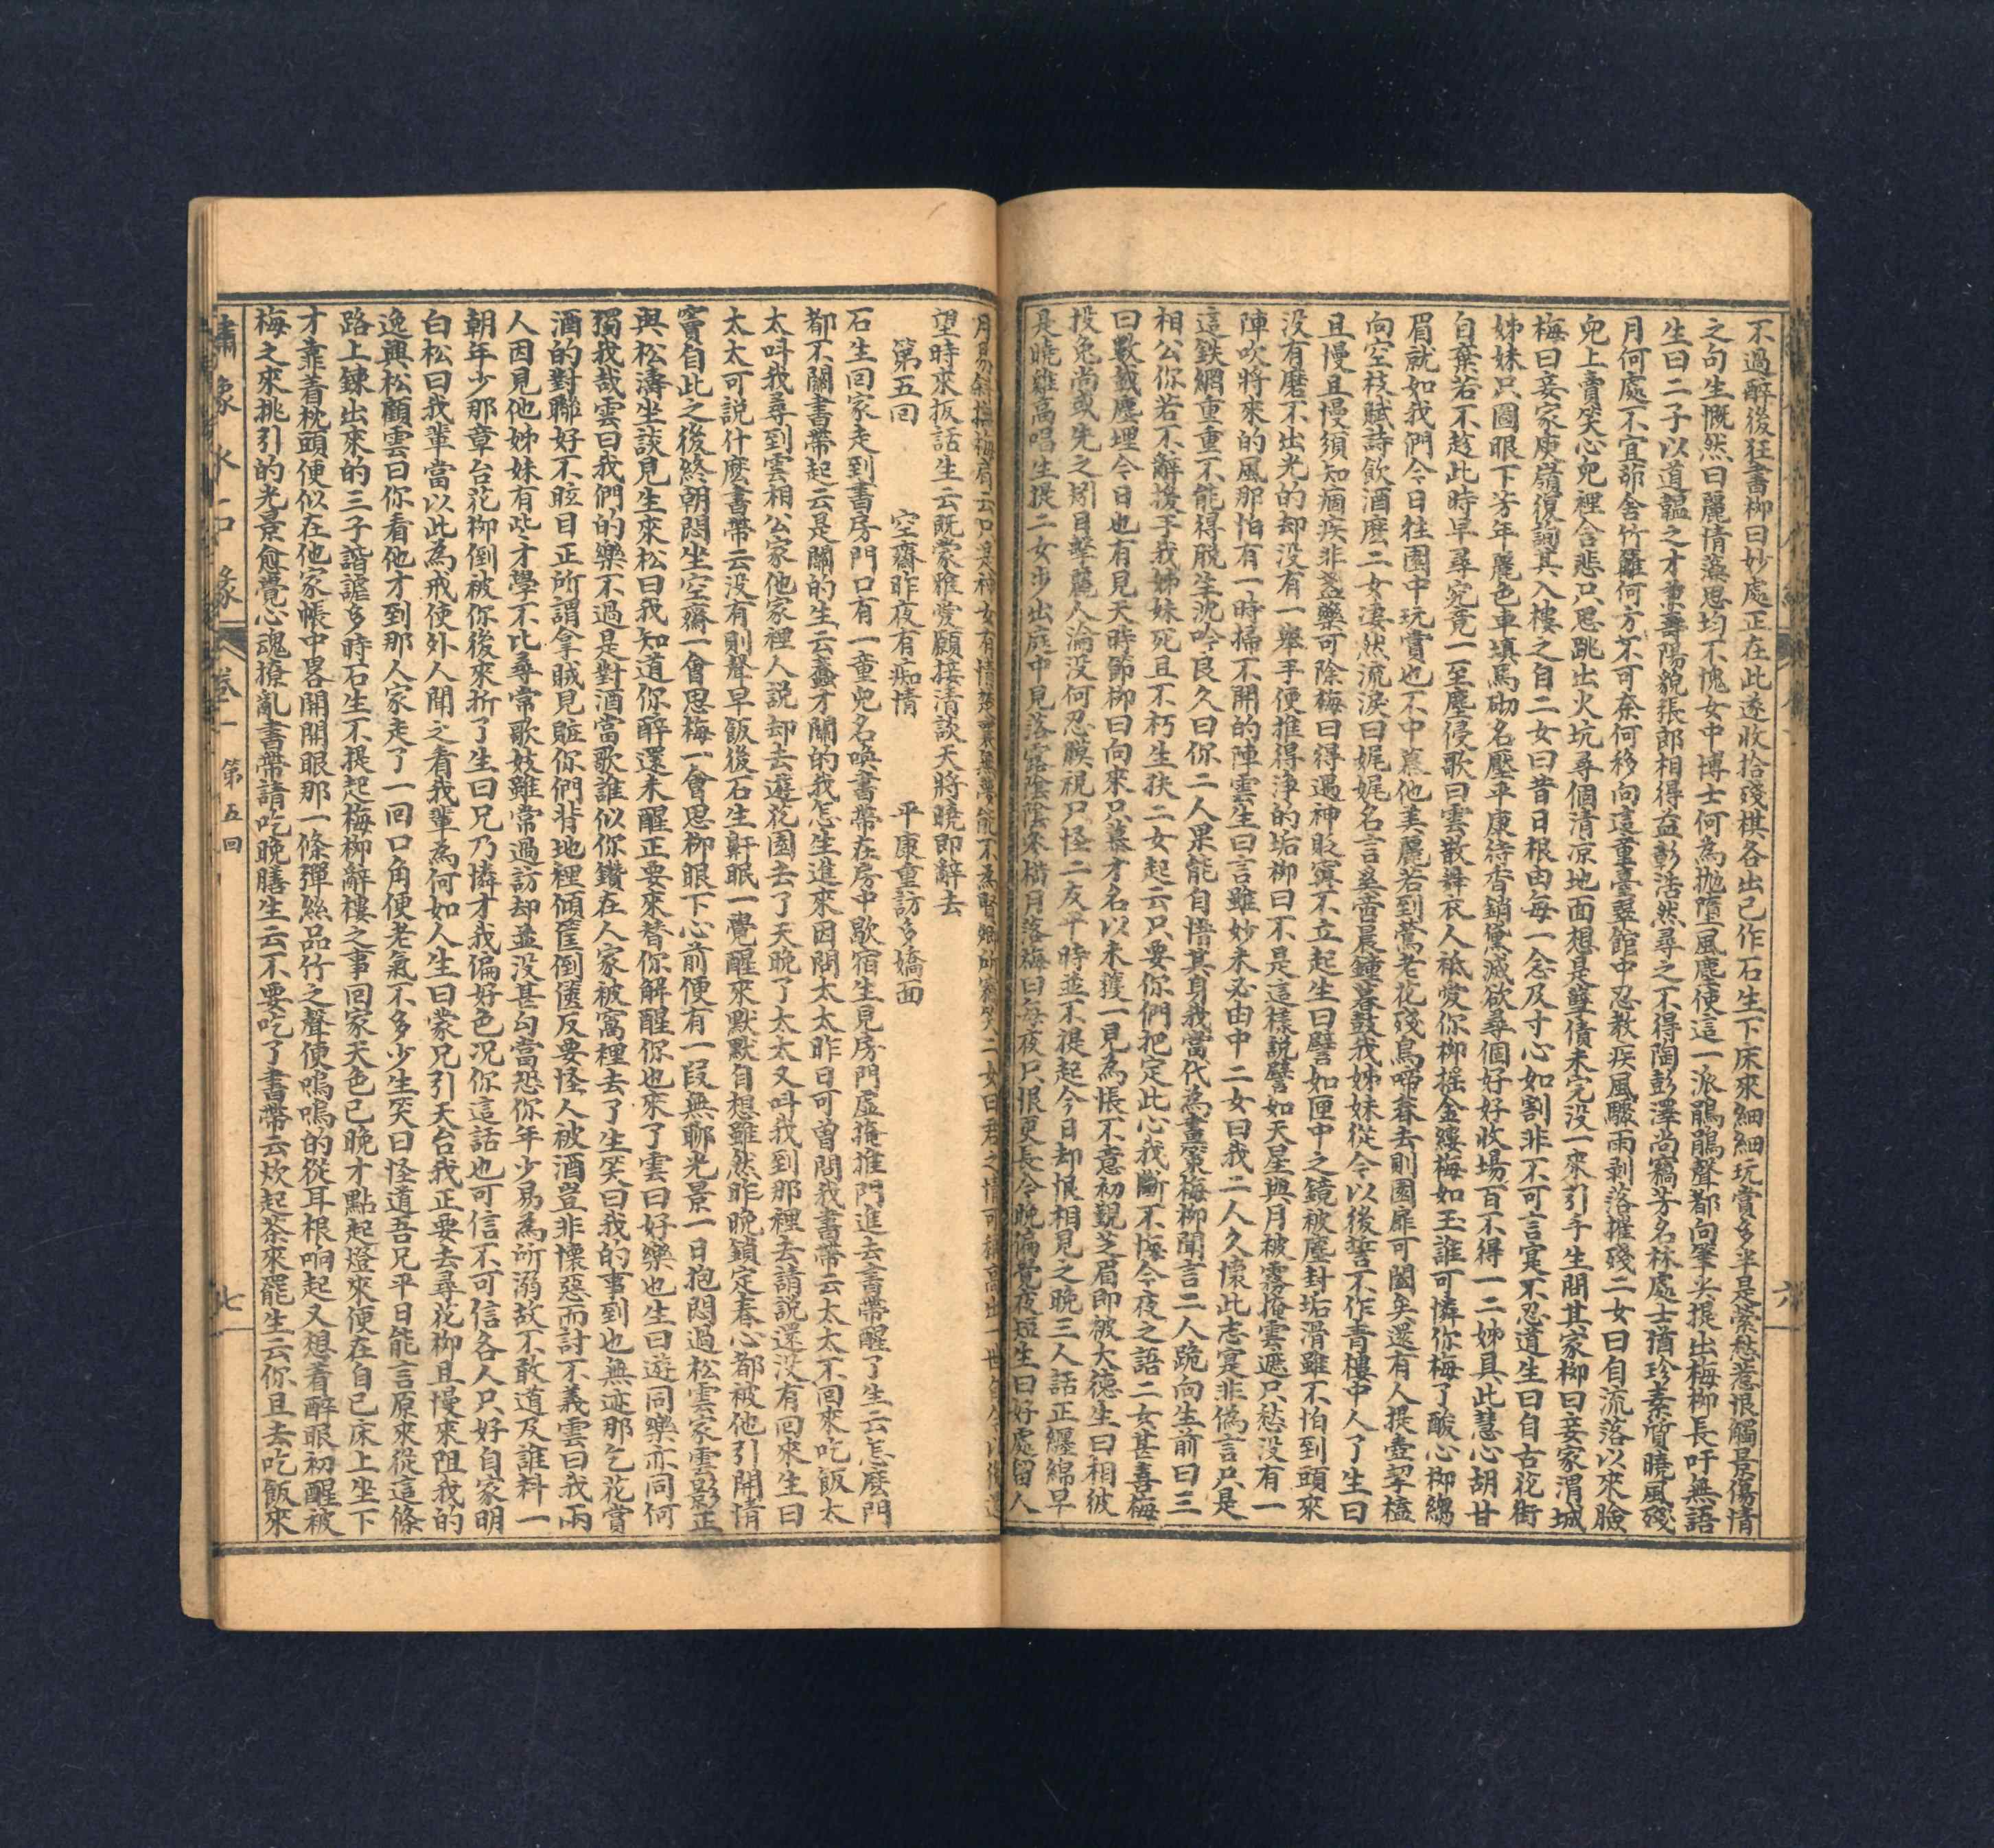 不過醉後狂書柳曰妙處正在此遂收拾殘棋各出己作石生下床來細細玩賞多半是縈愁惹恨觸景傷情
之句生慨然曰麗情藻思均不愧女中博士何為拋墮風塵使這一派鵑鵑聲都向筆尖提出梅柳長吁無語
生曰二子以道韞之才兼壽陽貌張郎相得益彰活然尋之不得陶彭澤尚竊芳名林處士猶珍素質曉風殘
月何處不宜茆舍竹籬何方不可奈何移向這章臺翠館中忍教疾風驟雨剝落摧殘二女曰自流落以來臉
兒上賣笑心兒裡含悲只思跳出火坑尋個清凉地面想是孽債未完没一來引手生問其家柳曰妾家渭城
梅曰妾家庾嶺復詢其入樓之自二女曰昔日根由每一念及寸心如割非不可言寔不忍道生曰自古花街
姊妹只圖眼下芳年麗色車填馬砌名壓平康待香銷黛滅欲尋個好好收場百不得一二姊具此慧心胡甘
自棄若不趁此時早尋究竟一至塵侵歌曰雲散舞衣人袛愛你柳摇金縷梅如玉誰可憐你梅了酸心柳縐
眉就如我們今日往園中玩賞也不中為他美麗若到鶯老花殘鳥啼春去則園扉可闔矣還有人提壺挈榼
向空枝賦詩飲酒麽二女凄然流淚曰娓娓名言奚啻晨鐘暮鼓我姊妹從今以後誓不作青樓中人了生曰
且慢且慢須知痼疾非盞藥可除梅曰得遇神醫寔不立起生曰譬如匣中之鏡被塵封垢滑雖不怕到頭來
没有磨不出光的却没有一舉手便推得浄的垢柳曰不是這樣説譬如天星與月被霧掩雲遮只愁没有一
陣吹將來的風那怕有一時掃不開的陣雲生曰言雖妙未必由中二女曰我二人久懷此志寔非偽言只是
這鉄網重重不能得脱生沈吟良久曰你二人果能自惜其身我當代為畫策梅柳聞言二人跪向生前曰三
相公你若不解援手我姊妹死且不朽生扶二女起云只要你們把定此心我斷不悔今夜之語二女甚喜梅
曰數載塵埋今日也有見天時節柳曰向來只慕才名以未獲一見為悵不意初覿芝眉即被大德生曰相彼
投兔尚或先之矧目擊麗人淪没何忍膜視只怪二友平時並不提起今日却恨相見之晚三人話正纏綿早
是曉雞高唱生提二女步出庭中見落霑陰陰參橫月落梅曰每夜只恨更長今晚偏覺夜短生曰好處留人
望時求扳話生云既蒙雅愛願接清談天將曉即辭去
第五回 空齋昨夜有痴情 平康重訪多嬌面
石生回家走到書房門口有一童兒名喚書帶在房中歇宿生見房門虛掩推門進去書帶醒了生云怎麽門
都不關書帶起云是關的生云蠢才關的我怎生進來因問太太昨日可曾問我書帶云太太不回來吃飯太
太呌我尋到雲相公家他家裡人説却去遊花園去了天晚了太太又呌我到那裡去請説還没有回來生曰
太太可説什麽書帶云没有則聲早飯後石生鼾眠一覺醒來默默自想雖然昨晚鎖定春心都被他引開情
竇自此之後終朝悶坐空齋一會思梅一會思柳眼下心前便有一段無聊光景一日抱悶過松雲家雲影正
與松濤坐談見生來松曰我知道你醉還未醒正要來替你解醒你也來了雲曰好樂也生曰遊同樂亦同何
獨我哉雲曰我們的樂不過是對酒當歌誰似你鑽在人家被窩裡去了生笑曰我的事到也無迹那乞花賞
酒的對聯好不眩目正所謂拿賊見賍你們背地裡傾筐倒篋反要怪人被酒豈非懷惡而討不義雲曰我兩
人因見他姊妹有些才學不比尋常歌妓雖常過訪却並没甚勾當恐你年少易為所溺故不敢道及誰料一
朝年少那章台花柳倒被你後來折了生曰兄乃憐才我偏好色况你這話也可信不可信各人只好自家明
白松曰我輩當以此為戒使外人聞之看我輩為何如人生曰蒙兄引天台我正要去尋花柳且慢來阻我的
逸興松顧雲曰你看他才到那人家走了一回口角便老氣不多少生笑曰怪道吾兄平日能言原來從這條
路上鍊出來的三子諧謔多時石生不提起梅柳辭樓之事回家天色已晚才點起燈來便在自己床上坐下
才靠着枕頭便似在他家帳中畧開開眼那一條彈絲品竹之聲使嗚嗚的從耳根响起又想着醉眼初醒被
梅之來挑引的光景愈覺心魂撩亂書帶請吃晚膳生云不要吃了書帶云炊起茶來罷生云你且去吃飯來
繡像水石緣 卷二 第五回 七
六